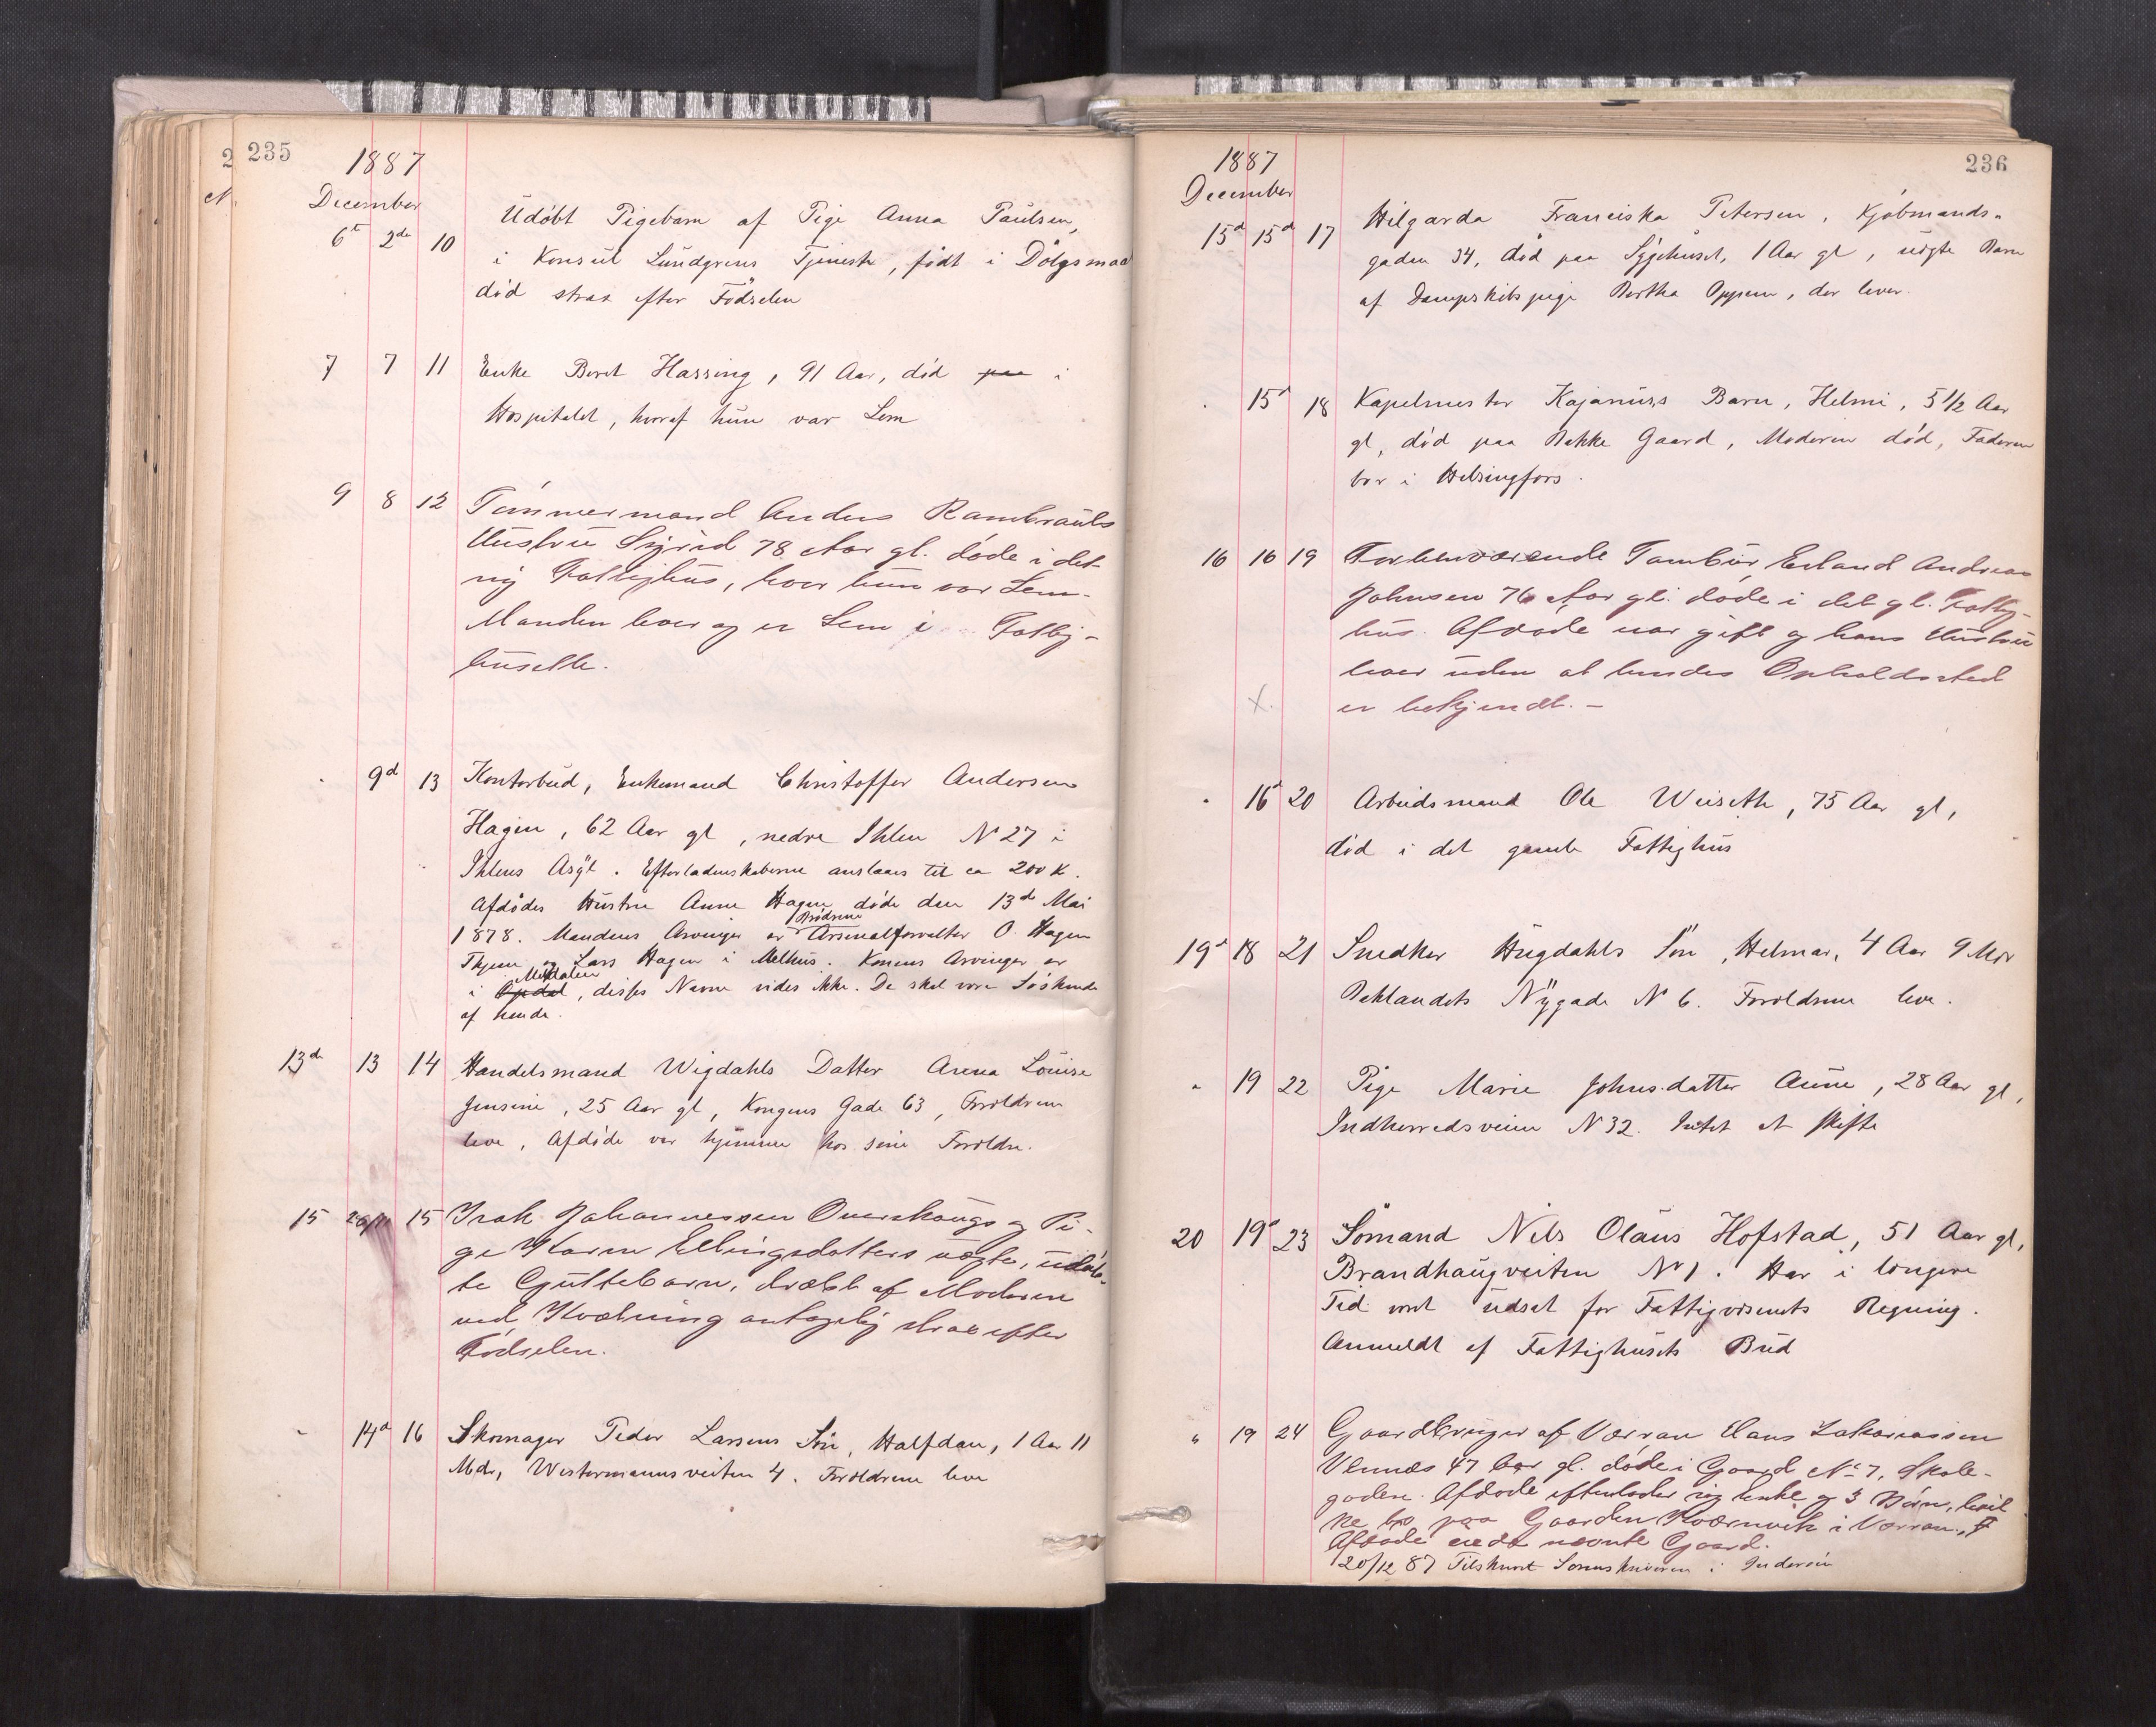 235
1887
December
6t 2de 10 Udøbt Pigebarn af Pige Anna Paulsen,
i Konsul Lundgrens Tjeneste, født i Dölgsmaal
död strax efter Födselen
7 7 11 Enke Beret Hassing, 91 Aar, död paa i
Hospitalet, hvoraf hun var Lem
9 8 12 Tømmermand Anders Rambrauts
Hustru Sigrid 78 Aar gl. døde i det
ny Fattighus, hvor hun var Lem.
Manden lever og er Lem i Fattig-
husette.
" 9d 13 Kontorbud, Enkemand Christoffer Andersen
Hagen, 62 Aar gl, nedre Ihlen No 27 i
Ihlens Asyl. Efterladenskaberne anslaaes til ca 200 K.
Afdödes Hustru Anne Hagen döde den 13de Mai
Brødrene
1878. Mandens Arvinger er Arsenalforvalter O. Hagen
Thjem og Lars Hagen i Melhus. Konens Arvinger er
Meldalen
i Opdal, disses Navne vides ikke. De skal være Söskende
af hende.
13de 13 14 Handelsmand Wigdahls Datter Anna Louise
Jensine, 25 Aar gl, Kongens Gade 63, Forældrene
leve, Afdöde var hjemme hos sine Forældre.
15 29/11 15 Isak Johannessen Overskougs og Pi-
ge Karen Ellingsdatters uægte, udøb-
te Guttebarn, dræbt af Moderen
ved Kvælning antagelig strax efter
Födselen.
" 14d 16 Skomager Peder Larsens Sön, Halfdan, 1 Aar 11
Mdr, Westermannsveiten 4. Forældrene leve
236
1887
December
15d 15d 17 Hilgarda Franciska Petersen, Kjöbmands-
gaden 34, död paa Sygehuset, 1 Aar gl, uægte Barn
af Dampskibspige Bertha Oppem, der lever.
" 15d 18 Kapelmester Kajanus's Barn, Helmi, 5 1/2 Aar
gl, död paa Bakke Gaard, Moderen död, Faderen
bor i Helsingfors.
16 16 19 Forhenværende Tambur Erland Andreas
Johnsen 76 Aar gl. døde i det gl. Fattig-
hus. Afdøde var gift og hans Hustru
lever uden at hendes Opholdssted
X. er bekjendt. -
" 16d 20 Arbeidsmand Ole Weiseth, 75 Aar gl,
död i det gamle Fattighus
19d 18 21 Snedker Hugdahls Sön, Helmar, 4 Aar 9 Mdr
Baklandets Nygade No 6. Forældrene leve.
" 19 22 Pige Marie Johnsdatter Aune, 28 Aar gl,
Indherredsveien N 32. Intet at skifte
20 19d 23 Sömand Nils Olaus Hofstad, 51 Aar gl,
Brandhaugveiten No 1. Har i længere
Tid været udsat for Fattigvæsenets Regning.
Anmeldt af Fattighusets Bud
" 19 24 Gaardbruger af Værran Hans Zakariassen
47 Aar gl. døde i Gaard No 7, Skole-
gaden. Afdøde efterlader sig Enke og 3 Børn, hvil
ke bo paa Gaarden Kvernvik i Værran,
Afdøde eiede nævnte Gaard.
20/12 87 Tilskrevet Sorenskriveren i Inderøen